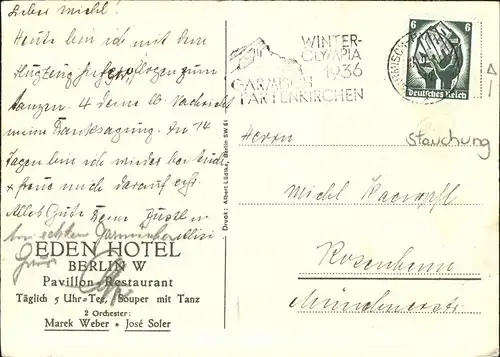 Lieber Michl!
Heute bin ich mit dem
Flugzeug zum
tanzen. 4
meine Danksagung. In 14
Tagen bin ich wieder bei Euch
+ freue mich darauf
Alles Gute Deine
EDEN HOTEL
BERLIN W
Pavillon-Restaurant
Täglich 5 Uhr-Tee, Souper mit Tanz
2 Orchester:
Marek Weber * José Soler
Druck: Albert Lüdtke, Berlin SW 61
WINTER-
OLYMPIA
1936
GARMISCH
PARTENKIRCHEN
6 6
Deutsches Reich
Stauchung
Herrn
Michl
Rosenheim
Münchnerstr.